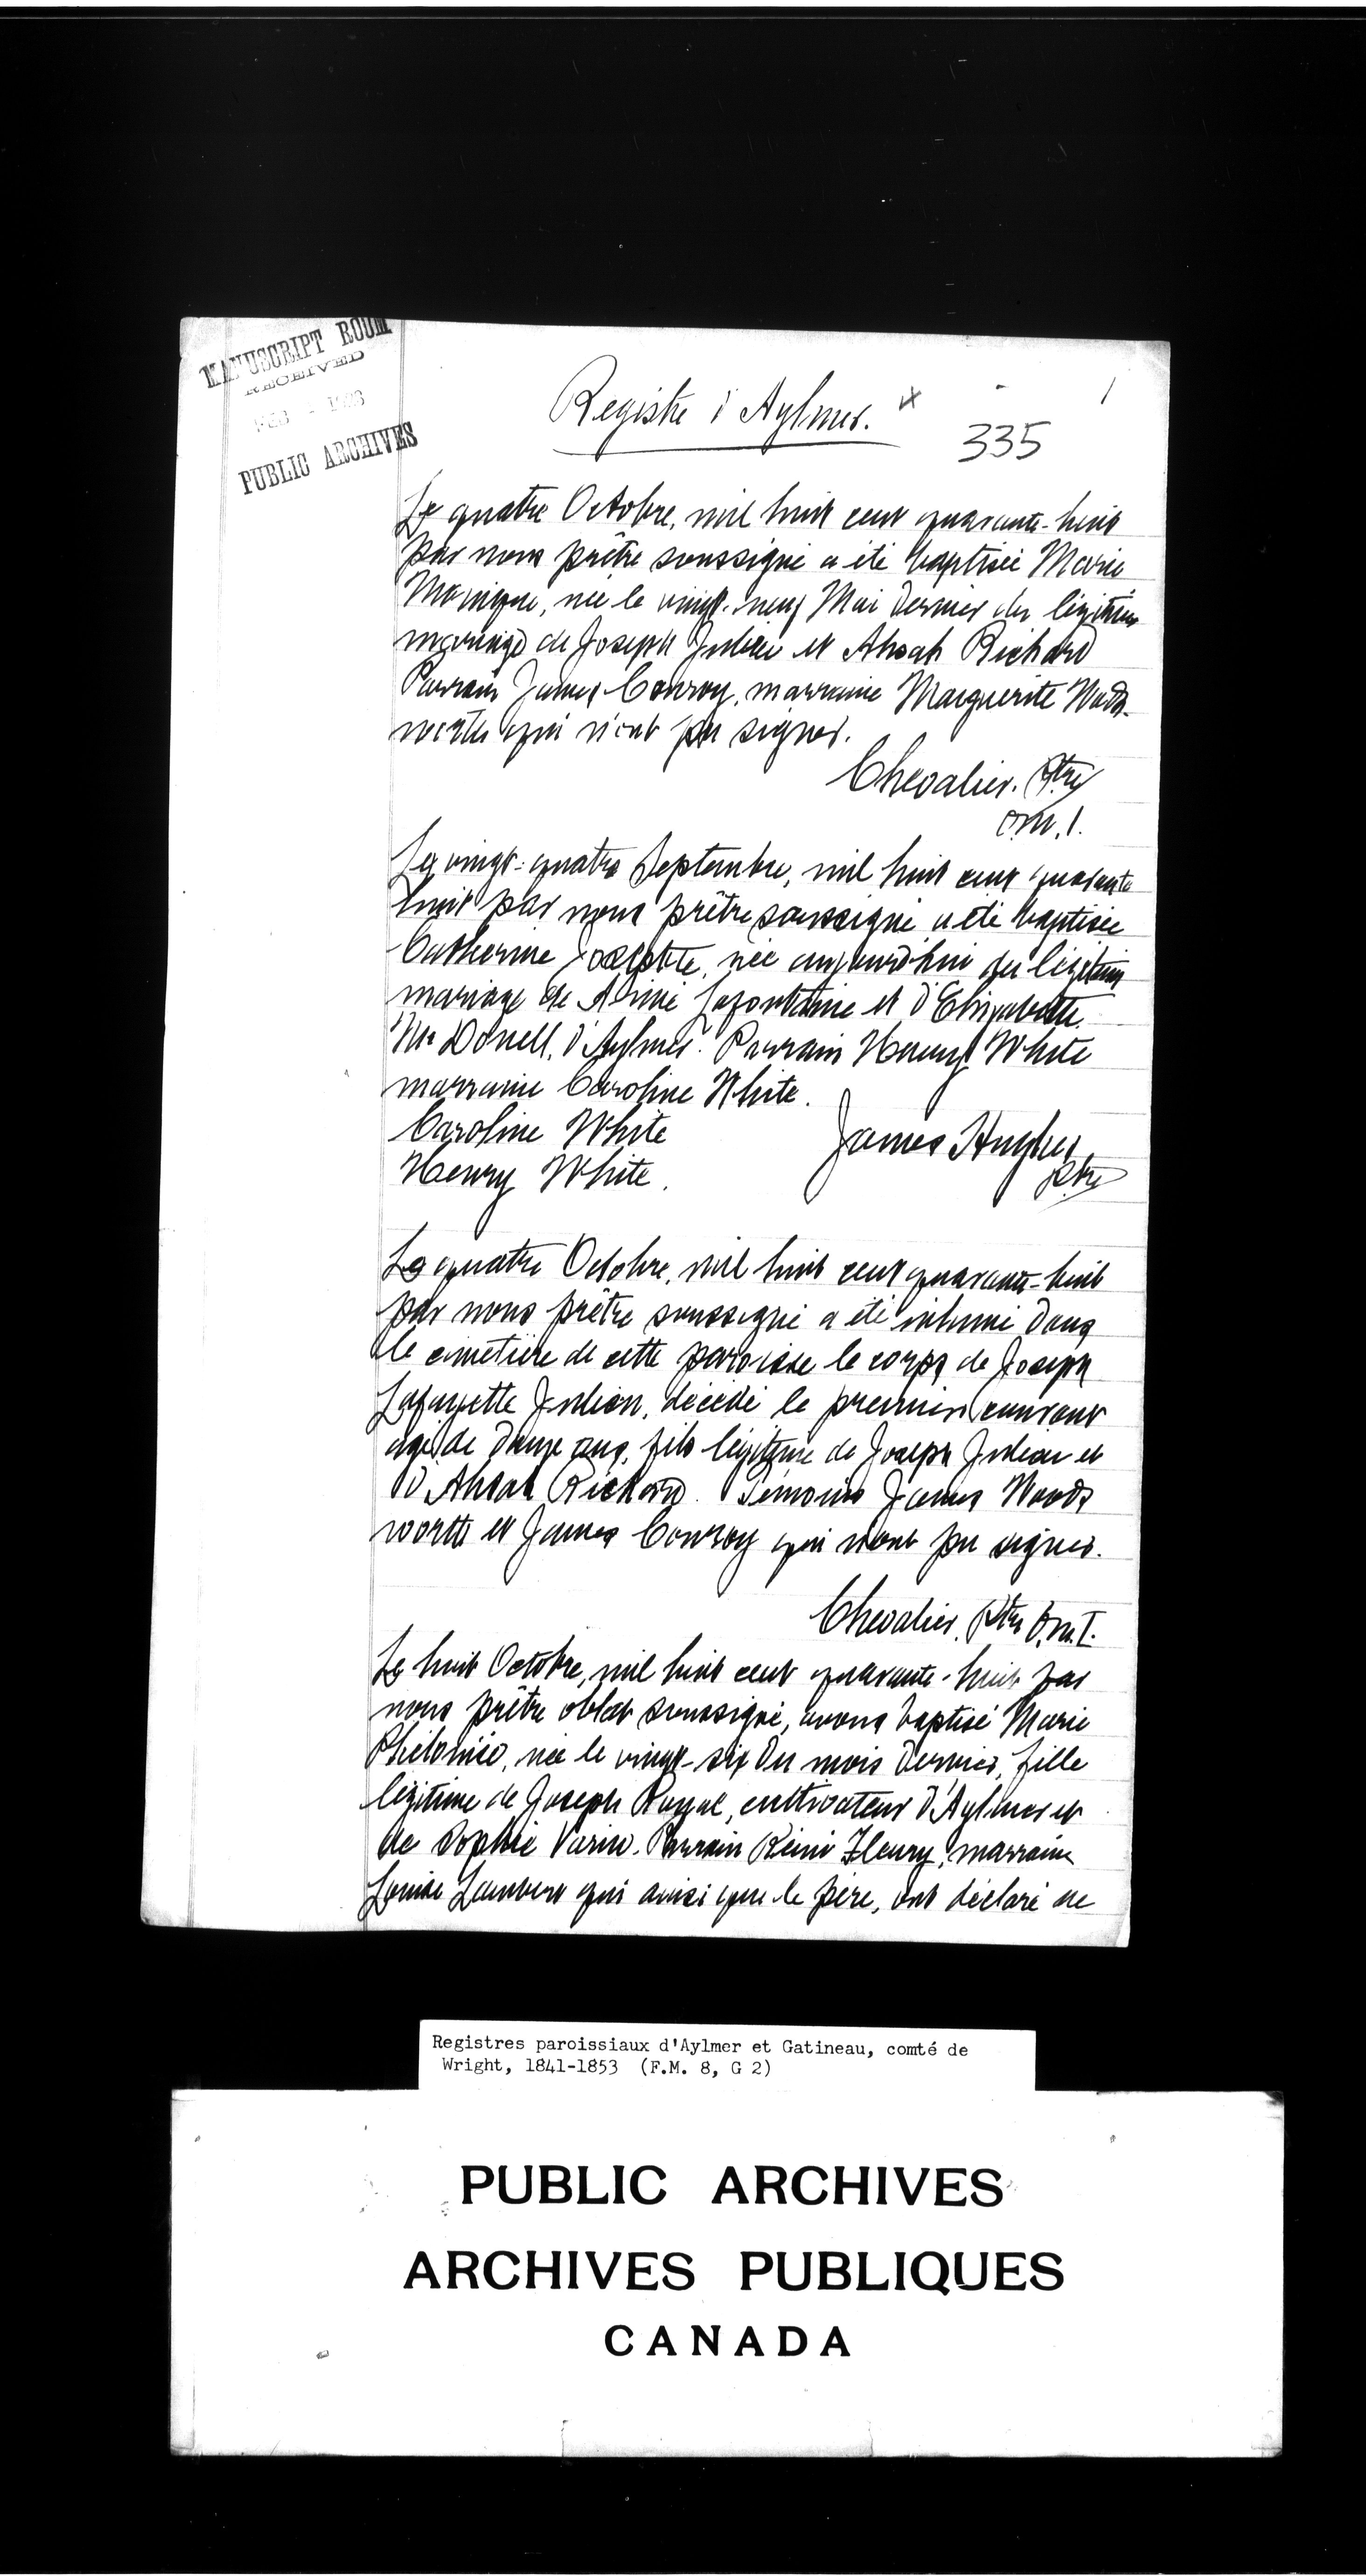 MANUSCRIPT ROOM
RECEIVED
FEB
PUBLIC ARCHIVES
1
Registre d'Aylmer. x
335
Le quatre Octobre, mil huit cent quarante-huit
par nous prêtre soussigné a été baptisée Marie
Monique, née le vingt-neuf Mai dernier du légitime
mariage de Joseph Julien et Ahsah Richard
Parrain James Conroy, marraine Marguerite Wads-
worth qui n'ont pu signer.
Chevalier. Ptre
o.m.I.
Le vingt-quatre Septembre, mil huit cent quarante
huit par nous prêtre soussigné a été baptisée
Catherine Josephte, née aujourd'hui du légitime
mariage de Aimé Lafontaine et d'Elizabette
McDonell, d'Aylmer. Parrain Henry White
marraine Caroline White.
Caroline White
James Hughes
Henry White.
Ptre
Le quatre Octobre, mil huit cent quarante-huit
par nous prêtre soussigné a été inhumé dans
le cimetière de cette paroisse le corps de Joseph
Lafayette Julien, décédé le premier courant
agé de douze ans, fils légitime de Joseph Julien et
d'Ahsah Richard. Témoins James Woods
worth et James Conroy qui n'ont pu signer.
Chevalier. Ptre o.m.I.
Le huit Octobre, mil huit cent quarante-huit par
nous prêtre oblat soussigné, avons baptisé Marie
Philomée, née le vingt-six du mois dernier, fille
légitime de Joseph Royal, cultivateur d'Aylmer et
de Sophie Varin. Parrain Rémi Fleury, marraine
Louise Lambert qui ainsi que le père, ont déclaré ne
Registres paroissiaux d'Aylmer et Gatineau, comté de
Wright, 1841-1853 (F.M. 8, G 2)
PUBLIC ARCHIVES
ARCHIVES PUBLIQUES
CANADA